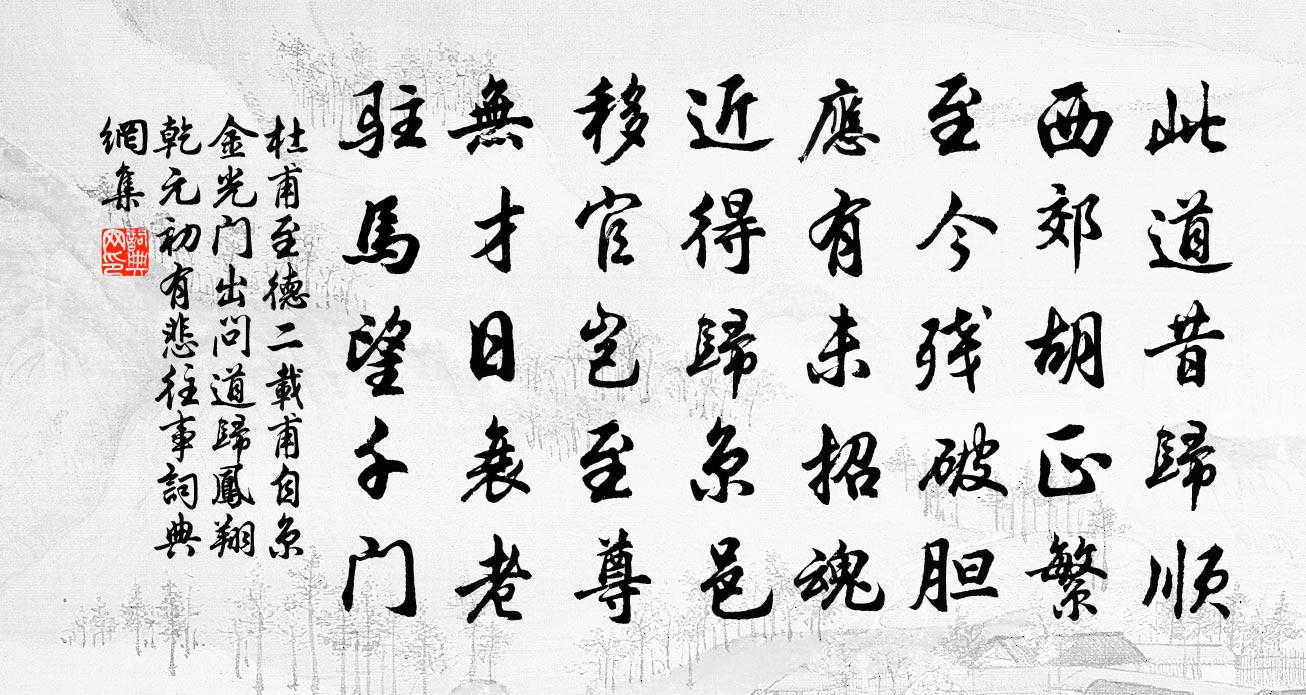 此道昔歸順
西郊胡正繁
至今殘破胆
應有未招魂
近得歸京邑
移官豈至尊
無才日衰老
駐馬望千門
杜甫至德二載甫自京
金光門出問道歸鳳翔
乾元初有悲往事詞典
網集
詞典網印